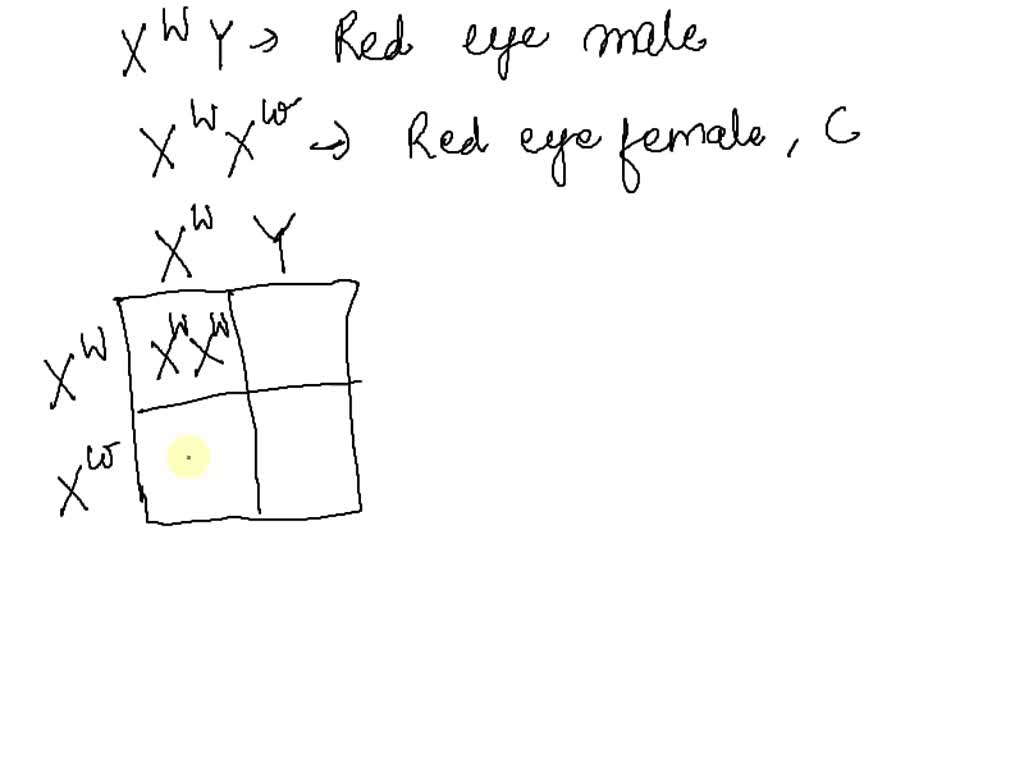 X^W Y → Red eye male
X^W X^w → Red eye female, C
X^W Y
X^W X^W X^W
X^w